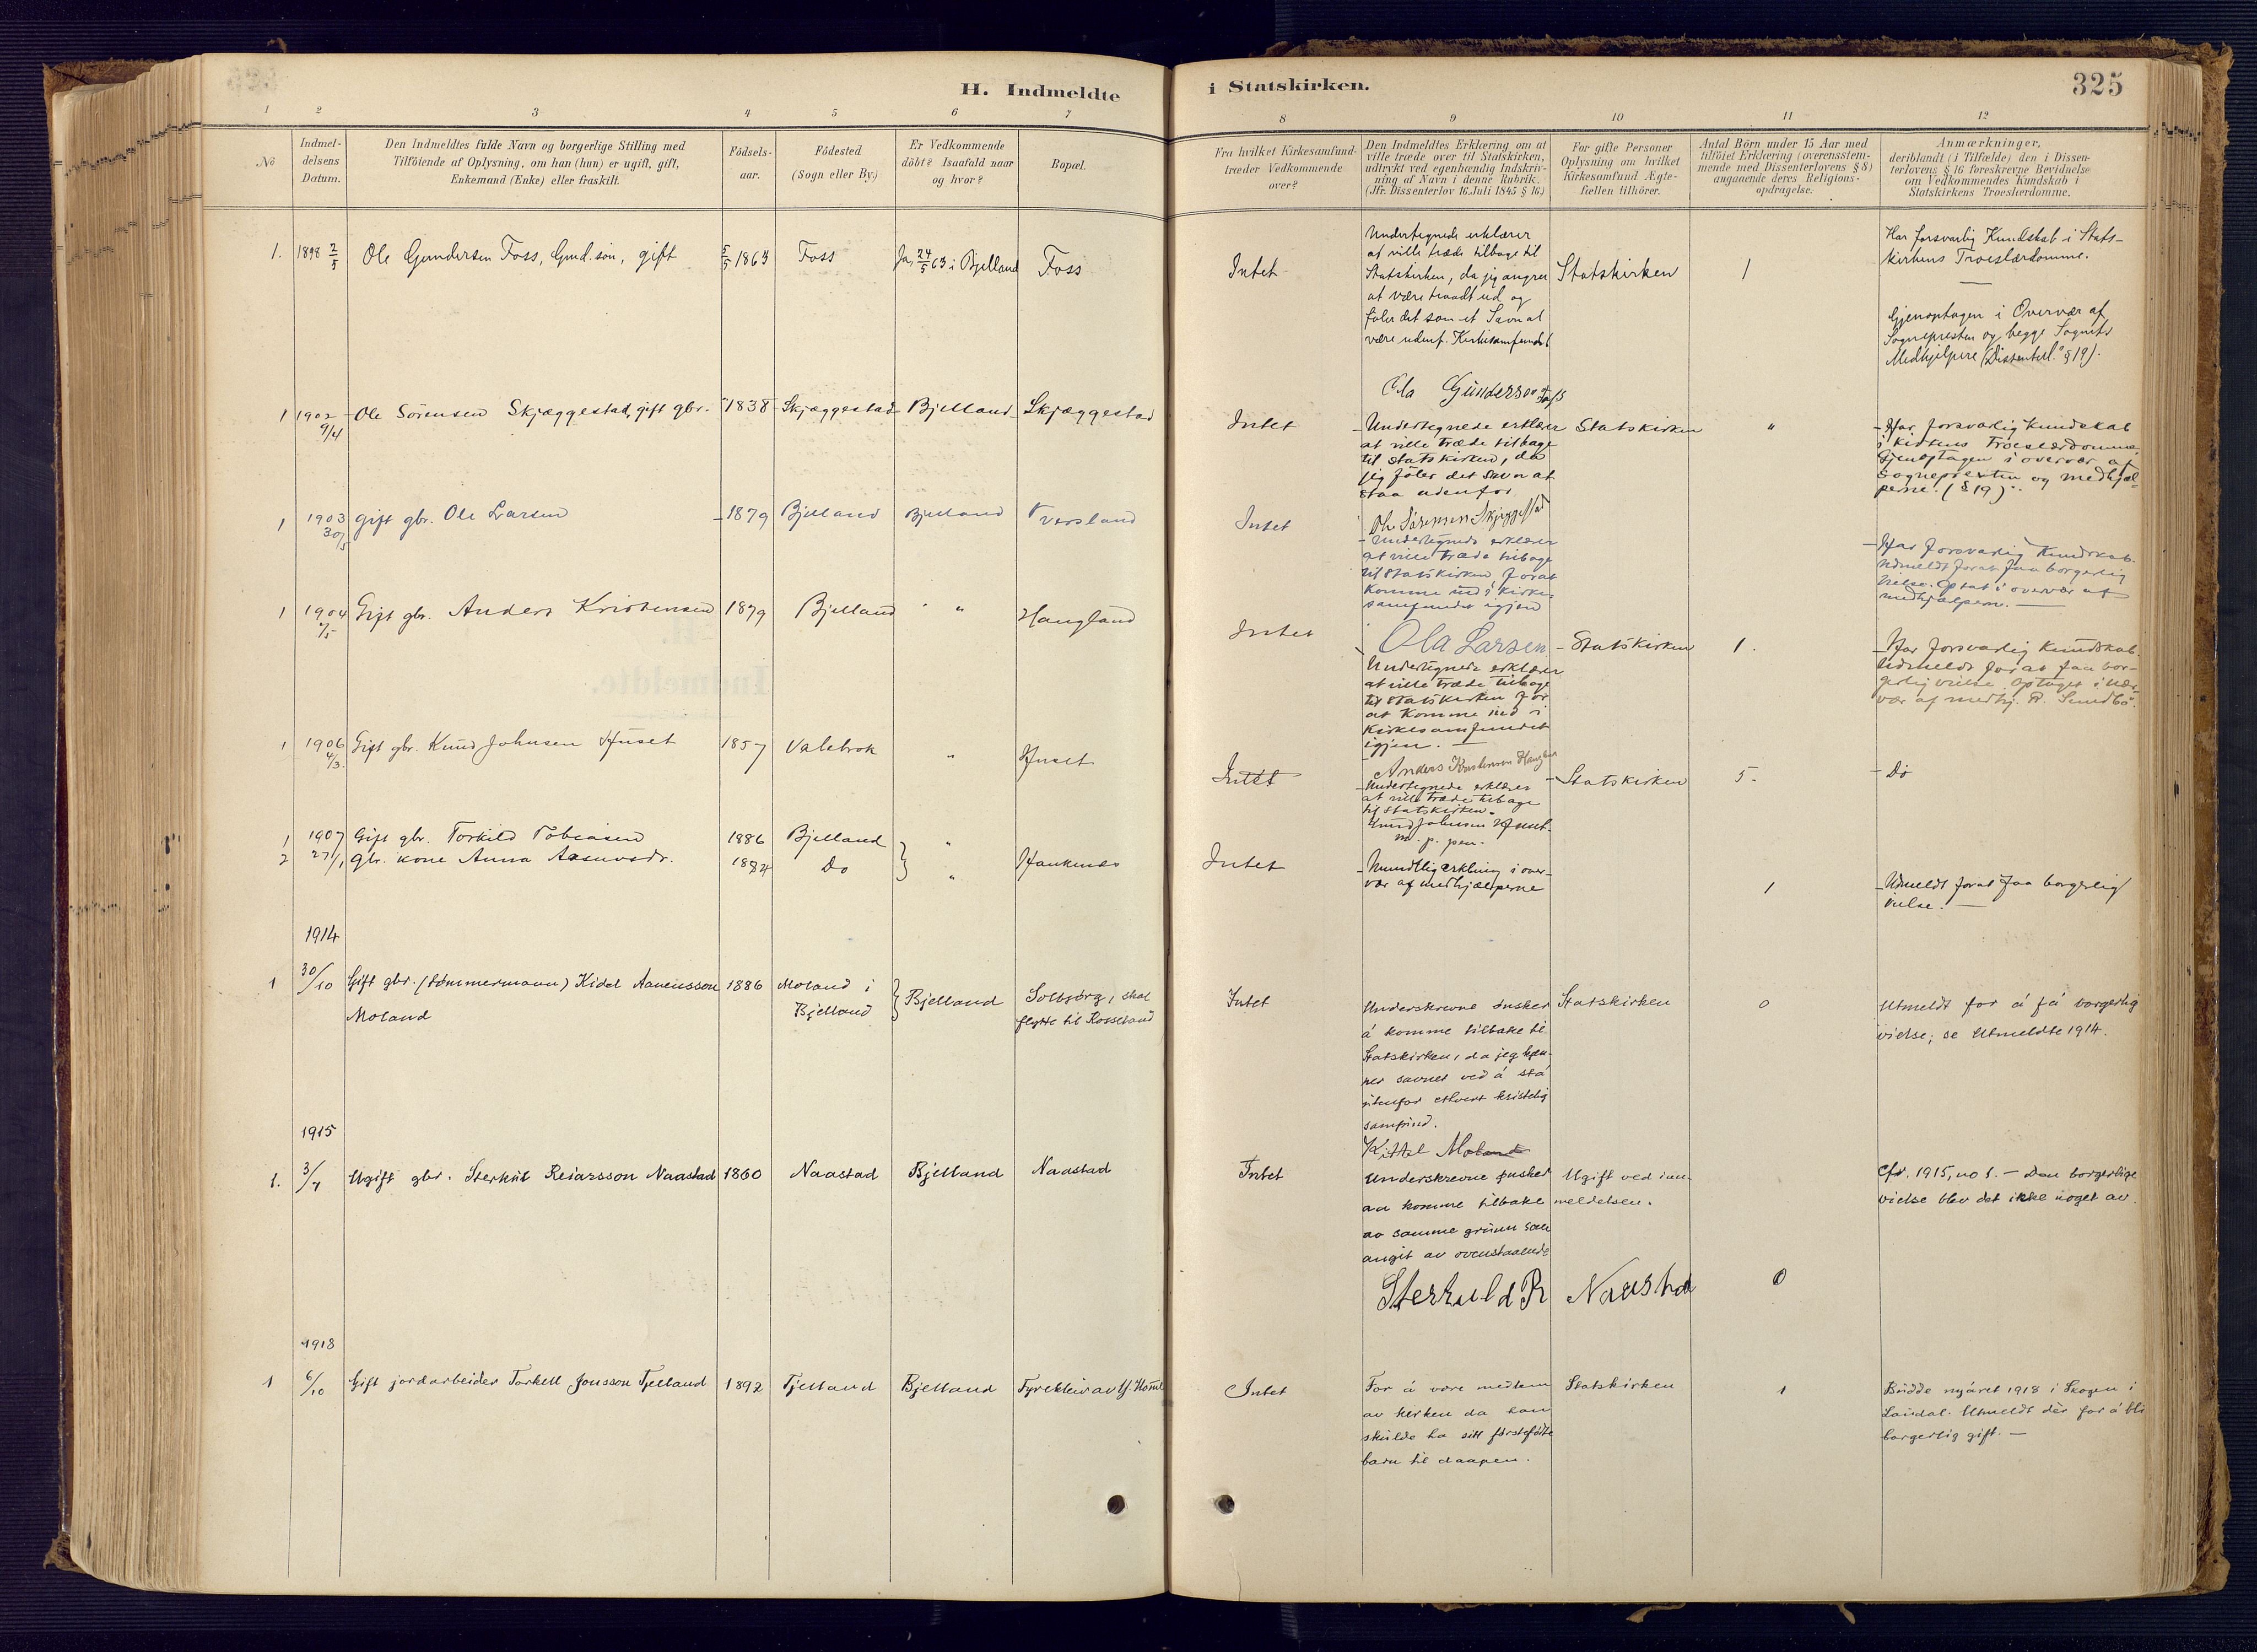 H. Indmeldte i Statskirken.
325
1 2 3 4 5 6 7 8 9 10 11 12
No
Indmel-
delsens
Datum.
Den Indmeldtes fulde Navn og borgerlige Stilling med
Tilföiende af Oplysning, om han (hun) er ugift, gift,
Enkemand (Enke) eller fraskilt.
Födsels-
aar.
Födested
(Sogn eller By.)
Er Vedkommende
döbt? Isaafald naar
og hvor?
Bopæl.
Fra hvilket Kirkesamfund
træder Vedkommende
over?
Den Indmeldtes Erklæring om at
ville træde over til Statskirken,
udtrykt ved egenhændig Indskriv-
ning af Navn i denne Rubrik.
(Jfr. Dissenterlov 16 Juli 1845 § 16)
For gifte Personer
Oplysning om hvilket
Kirkesamfund Ægte-
fællen tilhörer.
Antal Börn under 15 Aar med
tilföiet Erklæring (overensstem-
mende med Dissenterlovens § 8)
angaaende deres Religions-
opdragelse.
Anmærkninger,
deriblandt (i Tilfælde) den i Dissen-
terlovens § 16 foreskrevne Bevidnelse
om Vedkommendes Kundskab i
Statskirkens Troeslærdomme.
1. 1898 2/5 Ole Gundersen Foss, Gmd.sön, gift 5/5 1863 Foss Ja, 24/5 63 i Bjelland Foss
Intet
Undertegnede erklærer
at ville træde tilbage til
Statskirken, da jeg angrer
at være traadt ud og
föler det som et Savn at
være udenf. Kirkesamfundet
Ola Gunderson Foss
Statskirken
1
Har forsvarlig Kundskab i Stats-
kirkens Troeslærdomme.
Gjenoptagen i Overvær af
Sognepresten og begge Sognets
Medhjelpere (Dissenterl. § 19).
1 1902 9/4 Ole Sörensen Skjæggestad, gift gbr. 1838 Skjæggestad Bjelland Skjæggestad
Intet
Undertegnede erklærer
at ville træde tilbage
til statskirken, da
jeg föler det savn at
staa udenfor
Ole Sörensen Skjeggestad
Statskirken
"
Har forsvarlig kundskab
i kirkens Troeslærdomme.
Gjenoptagen i overvær af
Sognepresten og medhjæl-
perne. (§ 19).
1 1903 30/5 gift gbr. Ole Larsen 1879 Bjelland Bjelland Tversland
Intet
Undertegnede erklærer
at ville træde tilbage
til statskirken, forat
komme ind i kirke-
samfundet igjen
Ola Larsen
Har forsvarlig Kundskab.
Udmeldt forat faa borgerlig
vielse. Optat i overvær af
medhjælpern.
1 1904 /5 Gift gbr. Anders Kristensen 1879 Bjelland " " Haugland
Intet
Undertegnede erklærer
at ville træde tilbage
til statskirken for
at komme ind i
kirkesamfundet
igjen.
Anders Kristensen
Statskirken
1.
Har forsvarlig Kundskab.
Udmeldt for at faa bor-
gerlig vielse. Optaget i nær-
vær af medhj. R. Sundbö.
1 1906 4/3. Gift gbr. Knud Johnsen Huset 1857 Valebrok " Huset
Intet
Undertegnede erklærer
at ville træde tilbage
til statskirken.
Knud Johnsen Huset
m. p. pen.
Statskirken
5.
Do
1 1907 Gift gbr. Torkild Tobiasen 1886 Bjelland "
2 27/1 Gbr. kone Anna Aasuvsdr. 1884 Do "
Intet
Mundtlig erklæring i over-
vær af medhjælperne
1
Udmeldt forat faa borgerlig
vielse.
1914
1 30/10 Gift gbr. (tömmermann) Kidel Aanensson 1886 Moland i Bjelland
Moland
Bjelland
Solbjørg, skal
flytte til Rosseland
Intet
Underskrevne ønsker
å komme tilbake til
Statskirken, da jeg kjen-
ner savnet ved å stå
utenfor ethvert kristelig
samfund.
Kittel Moland
Statskirken
0
Utmeldt for å få borgerlig
vielse; se Utmeldte 1914.
1915
1. 3/7 Ugift gbr. Sterkul Reiarsson Naastad 1860 Naastad Bjelland Naastad
Intet
Underskrevne ønsker
aa komme tilbake
av samme grunn som
angit av ovenstaaende
Sterkuld R Naasta
Ugift ved inn-
meldelsen.
0
Cfr. 1915, no 1. — Den borgerlige
vielse blev det ikke noget av.
1918
1 6/10 Gift jordarbeider Torkell Jonsson Fjelland 1892 Fjelland Bjelland
Intet
For å være medlem
av kirken da han
skulde ha sitt førstefødte
barn til daapen.
Statskirken
1
Budde nyåret 1918 i Skogen i
Laudal. Utmeldt der for å bli
borgerlig gift. —